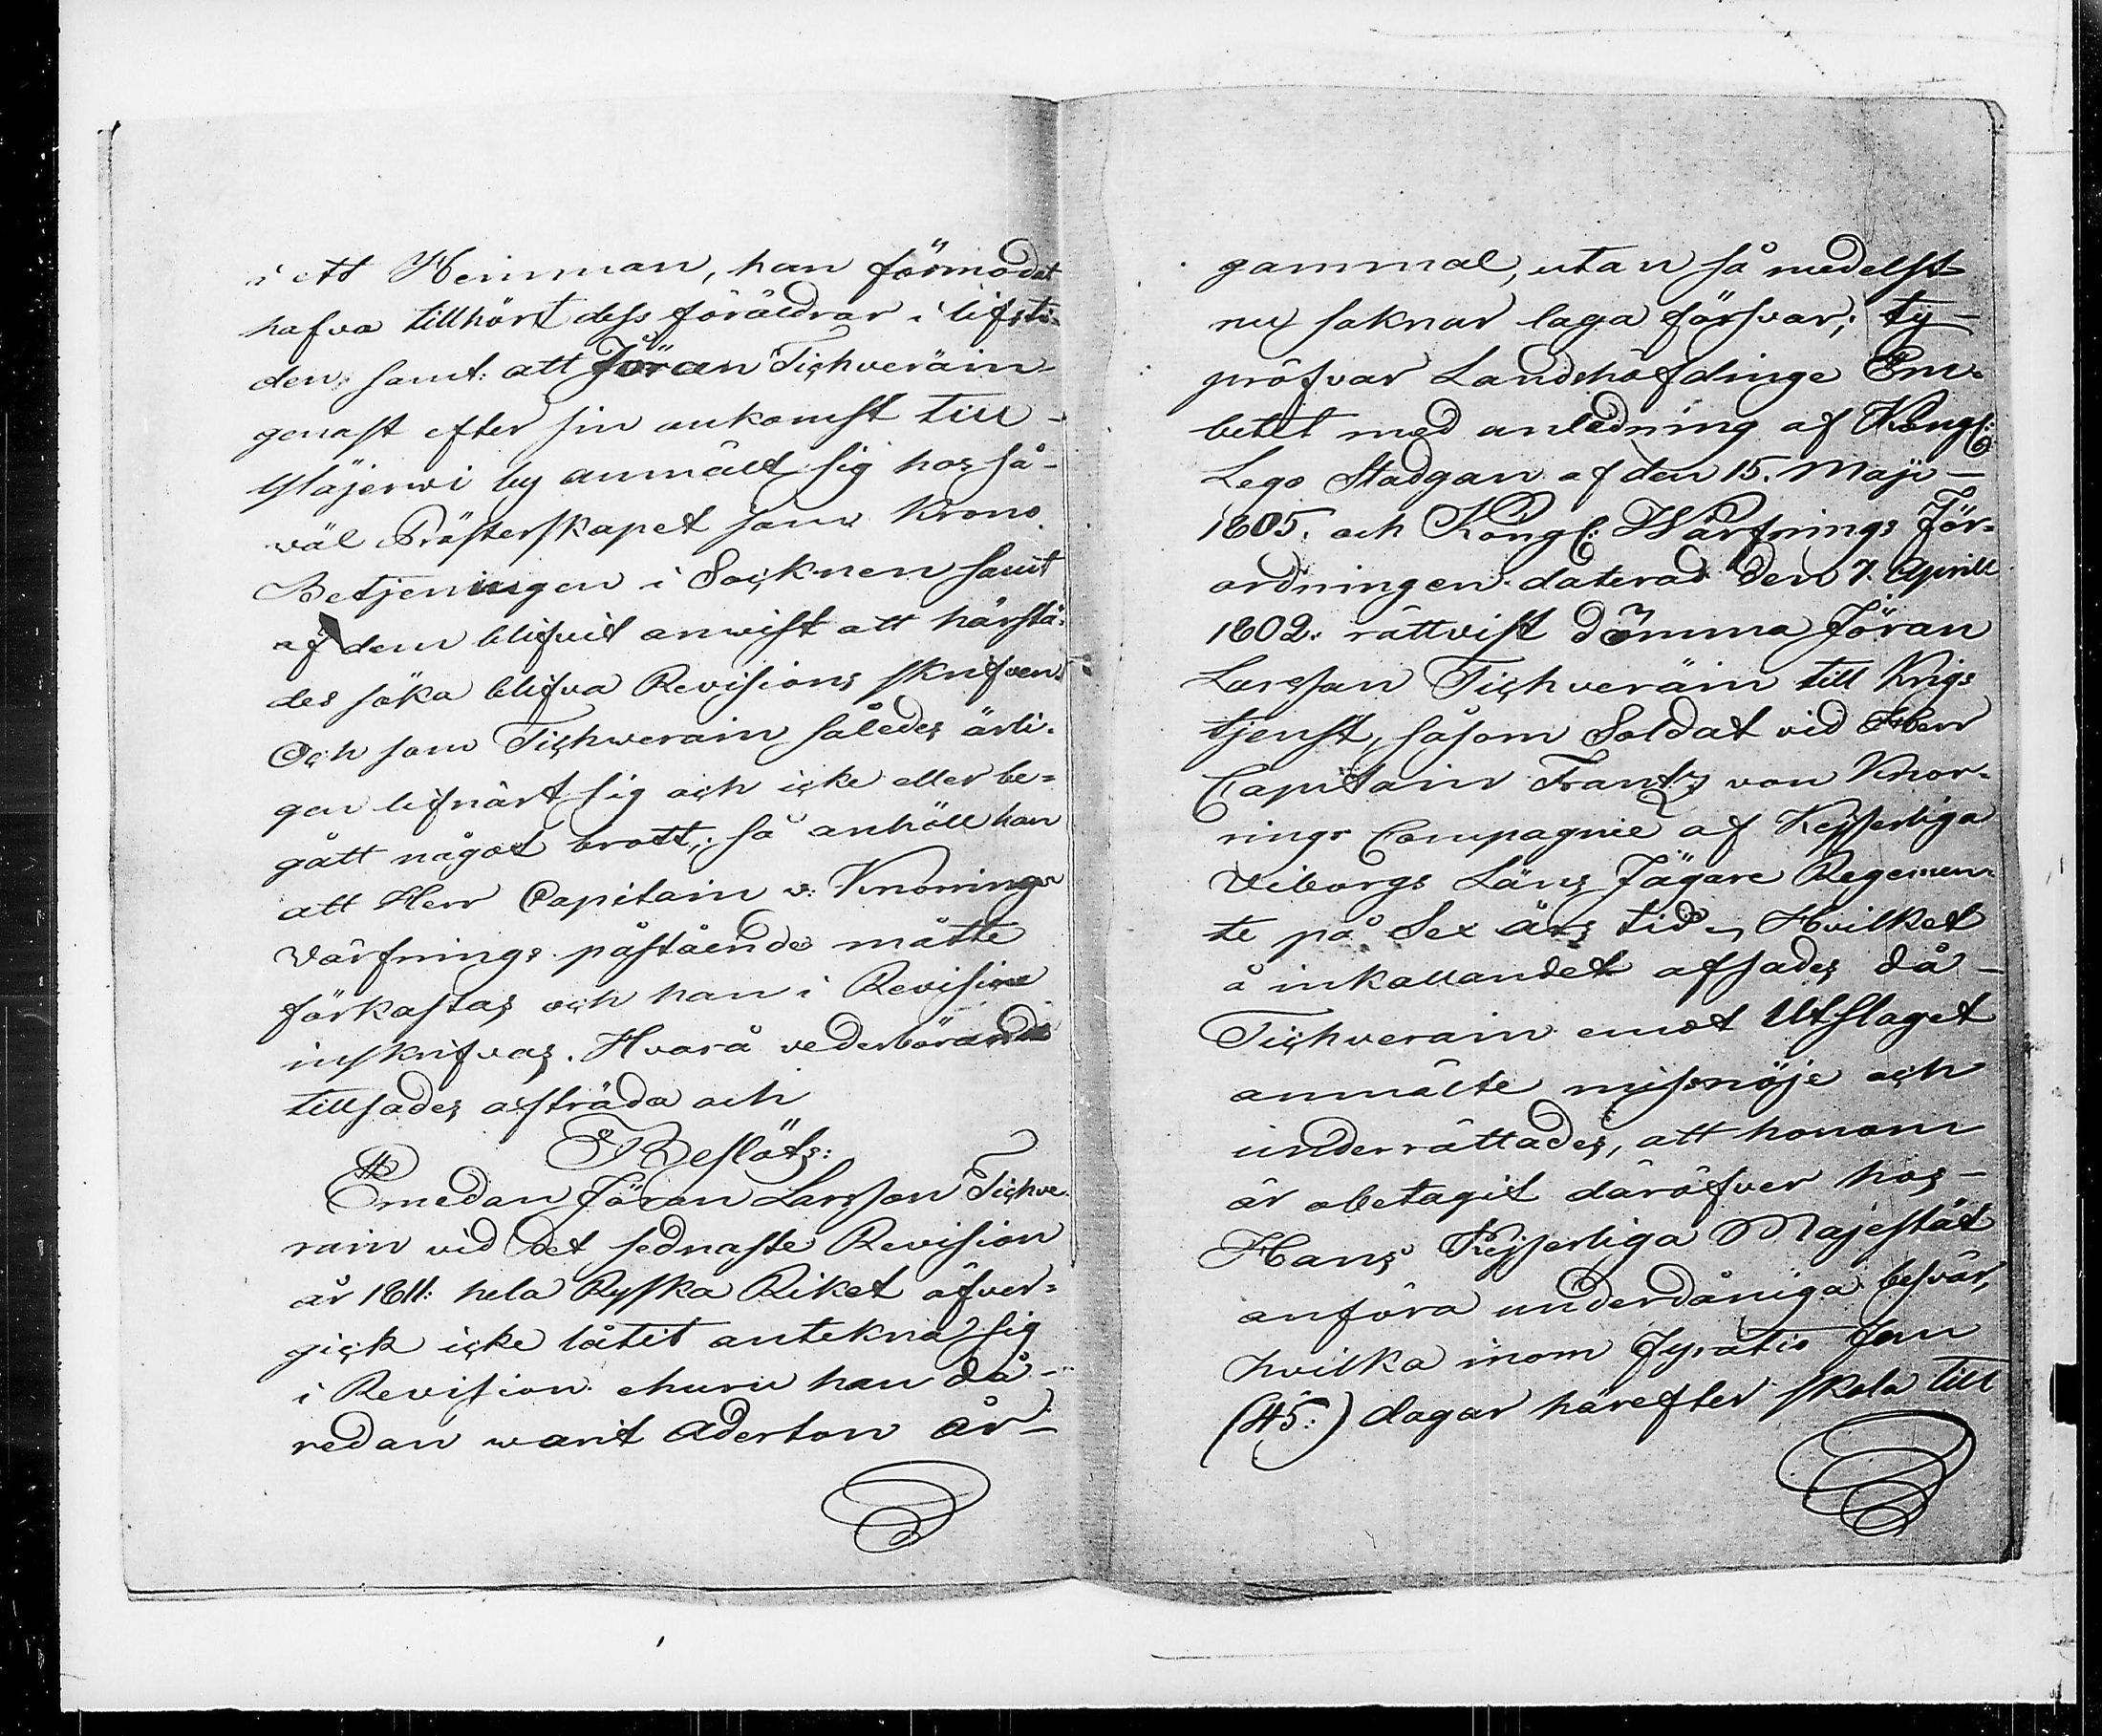 i ett Hemman, han förmodat
hafva tillhört dess föräldrar i lifsti=
den, samt: att Jöran Tichveräin
genast efter sin ankomst till
Yläjerwi by anmält sig hos så-
väl Prästerskapet som Krono
Betjeningen i Socknen samt
af dem blifvit anwist att härstä=
des söka blifva Revisions skrifven
Och som Tichwerain således ärli-
gen lifnärt sig och icke eller be=
gått något brott; så anhöll han
att Herr Capitain v: Knorrings
Värfnings påstående måtte
förkastas och han i Revision
inskrifvas. Hvarå vederbörande
tillsades afträda och
Beslöts:
Emedan Jöran Larsson Tichve
rain vid det sednaste Revision
år 1811: hela Ryska Riket öfver=
gick icke låtit antekna sig
i Revision ehuru han då
redan warit Aderton år
gammal, utan så medelst
nu saknar laga försvar; ty
pröfvar Landshöfdinge Em=
betet med anledning af Kongl:
Lego Stadgan af den 15. Maji
1805. och Kongl: Wärfnings För=
ordningen daterad den 7. Aprill
1802. rättvist dömma Jöran
Larsson Tichveräin till Krigs
tjenst, såsom Soldat vid Herr
Capitain Frantz von Knor=
rings Compagnie af Kejserliga
Viborgs Läns Jägare Regemen=
te på Sex års tid, Hvilket
å inkallandet afsades då
Tichverain emot Utslaget
anmälte missnöje och
underrättades, att honom
är obetagit däröfver hos
Hans Kejserliga Majestät
anföra underdåniga besvär,
hvilka inom fyratio fem
(45:) dagar härefter skola till